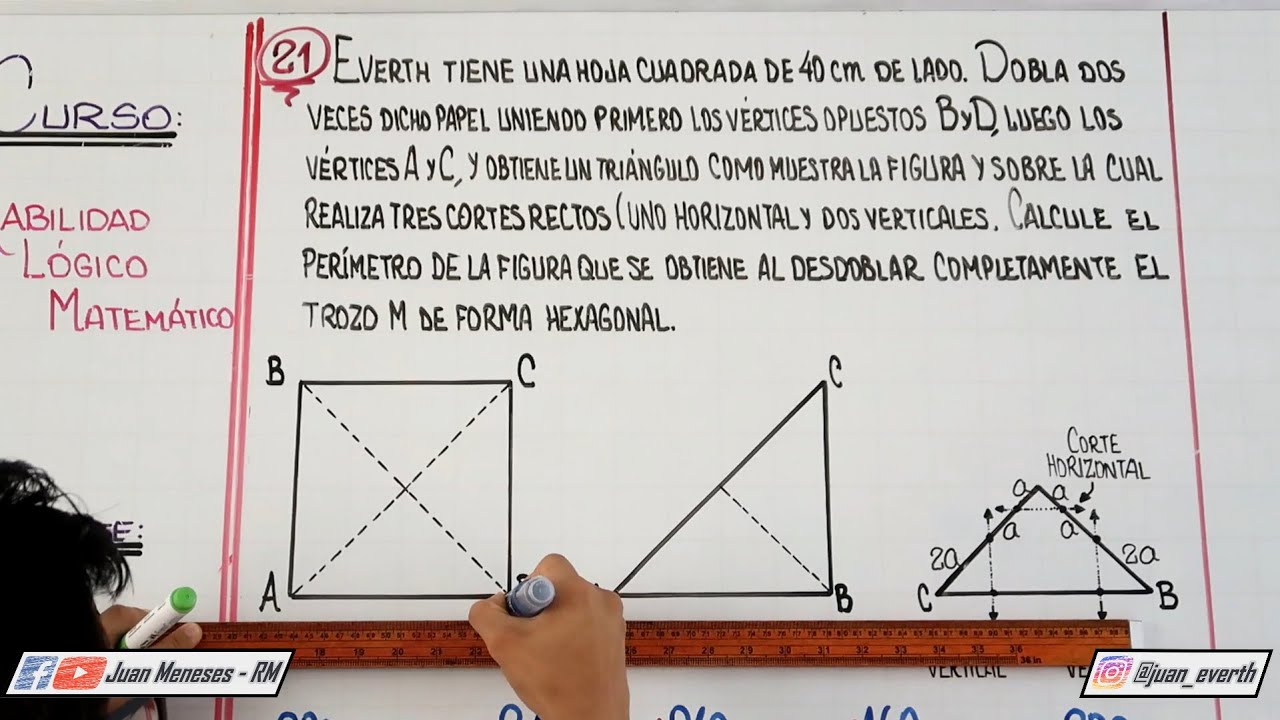 CURSO:
ABILIDAD
LÓGICO
MATEMÁTICO
21 EVERTH TIENE UNA HOJA CUADRADA DE 40 cm DE LADO. DOBLA DOS
VECES DICHO PAPEL UNIENDO PRIMERO LOS VÉRTICES OPUESTOS B y D, LUEGO LOS
VÉRTICES A y C, Y OBTIENE UN TRIÁNGULO COMO MUESTRA LA FIGURA Y SOBRE LA CUAL
REALIZA TRES CORTES RECTOS (UNO HORIZONTAL Y DOS VERTICALES. CALCULE EL
PERÍMETRO DE LA FIGURA QUE SE OBTIENE AL DESDOBLAR COMPLETAMENTE EL
TROZO M DE FORMA HEXAGONAL.
B C
A
C
B
CORTE
HORIZONTAL
a a
a a
2a 2a
C B
VERTICAL
Juan Meneses - RM
@juan_everth